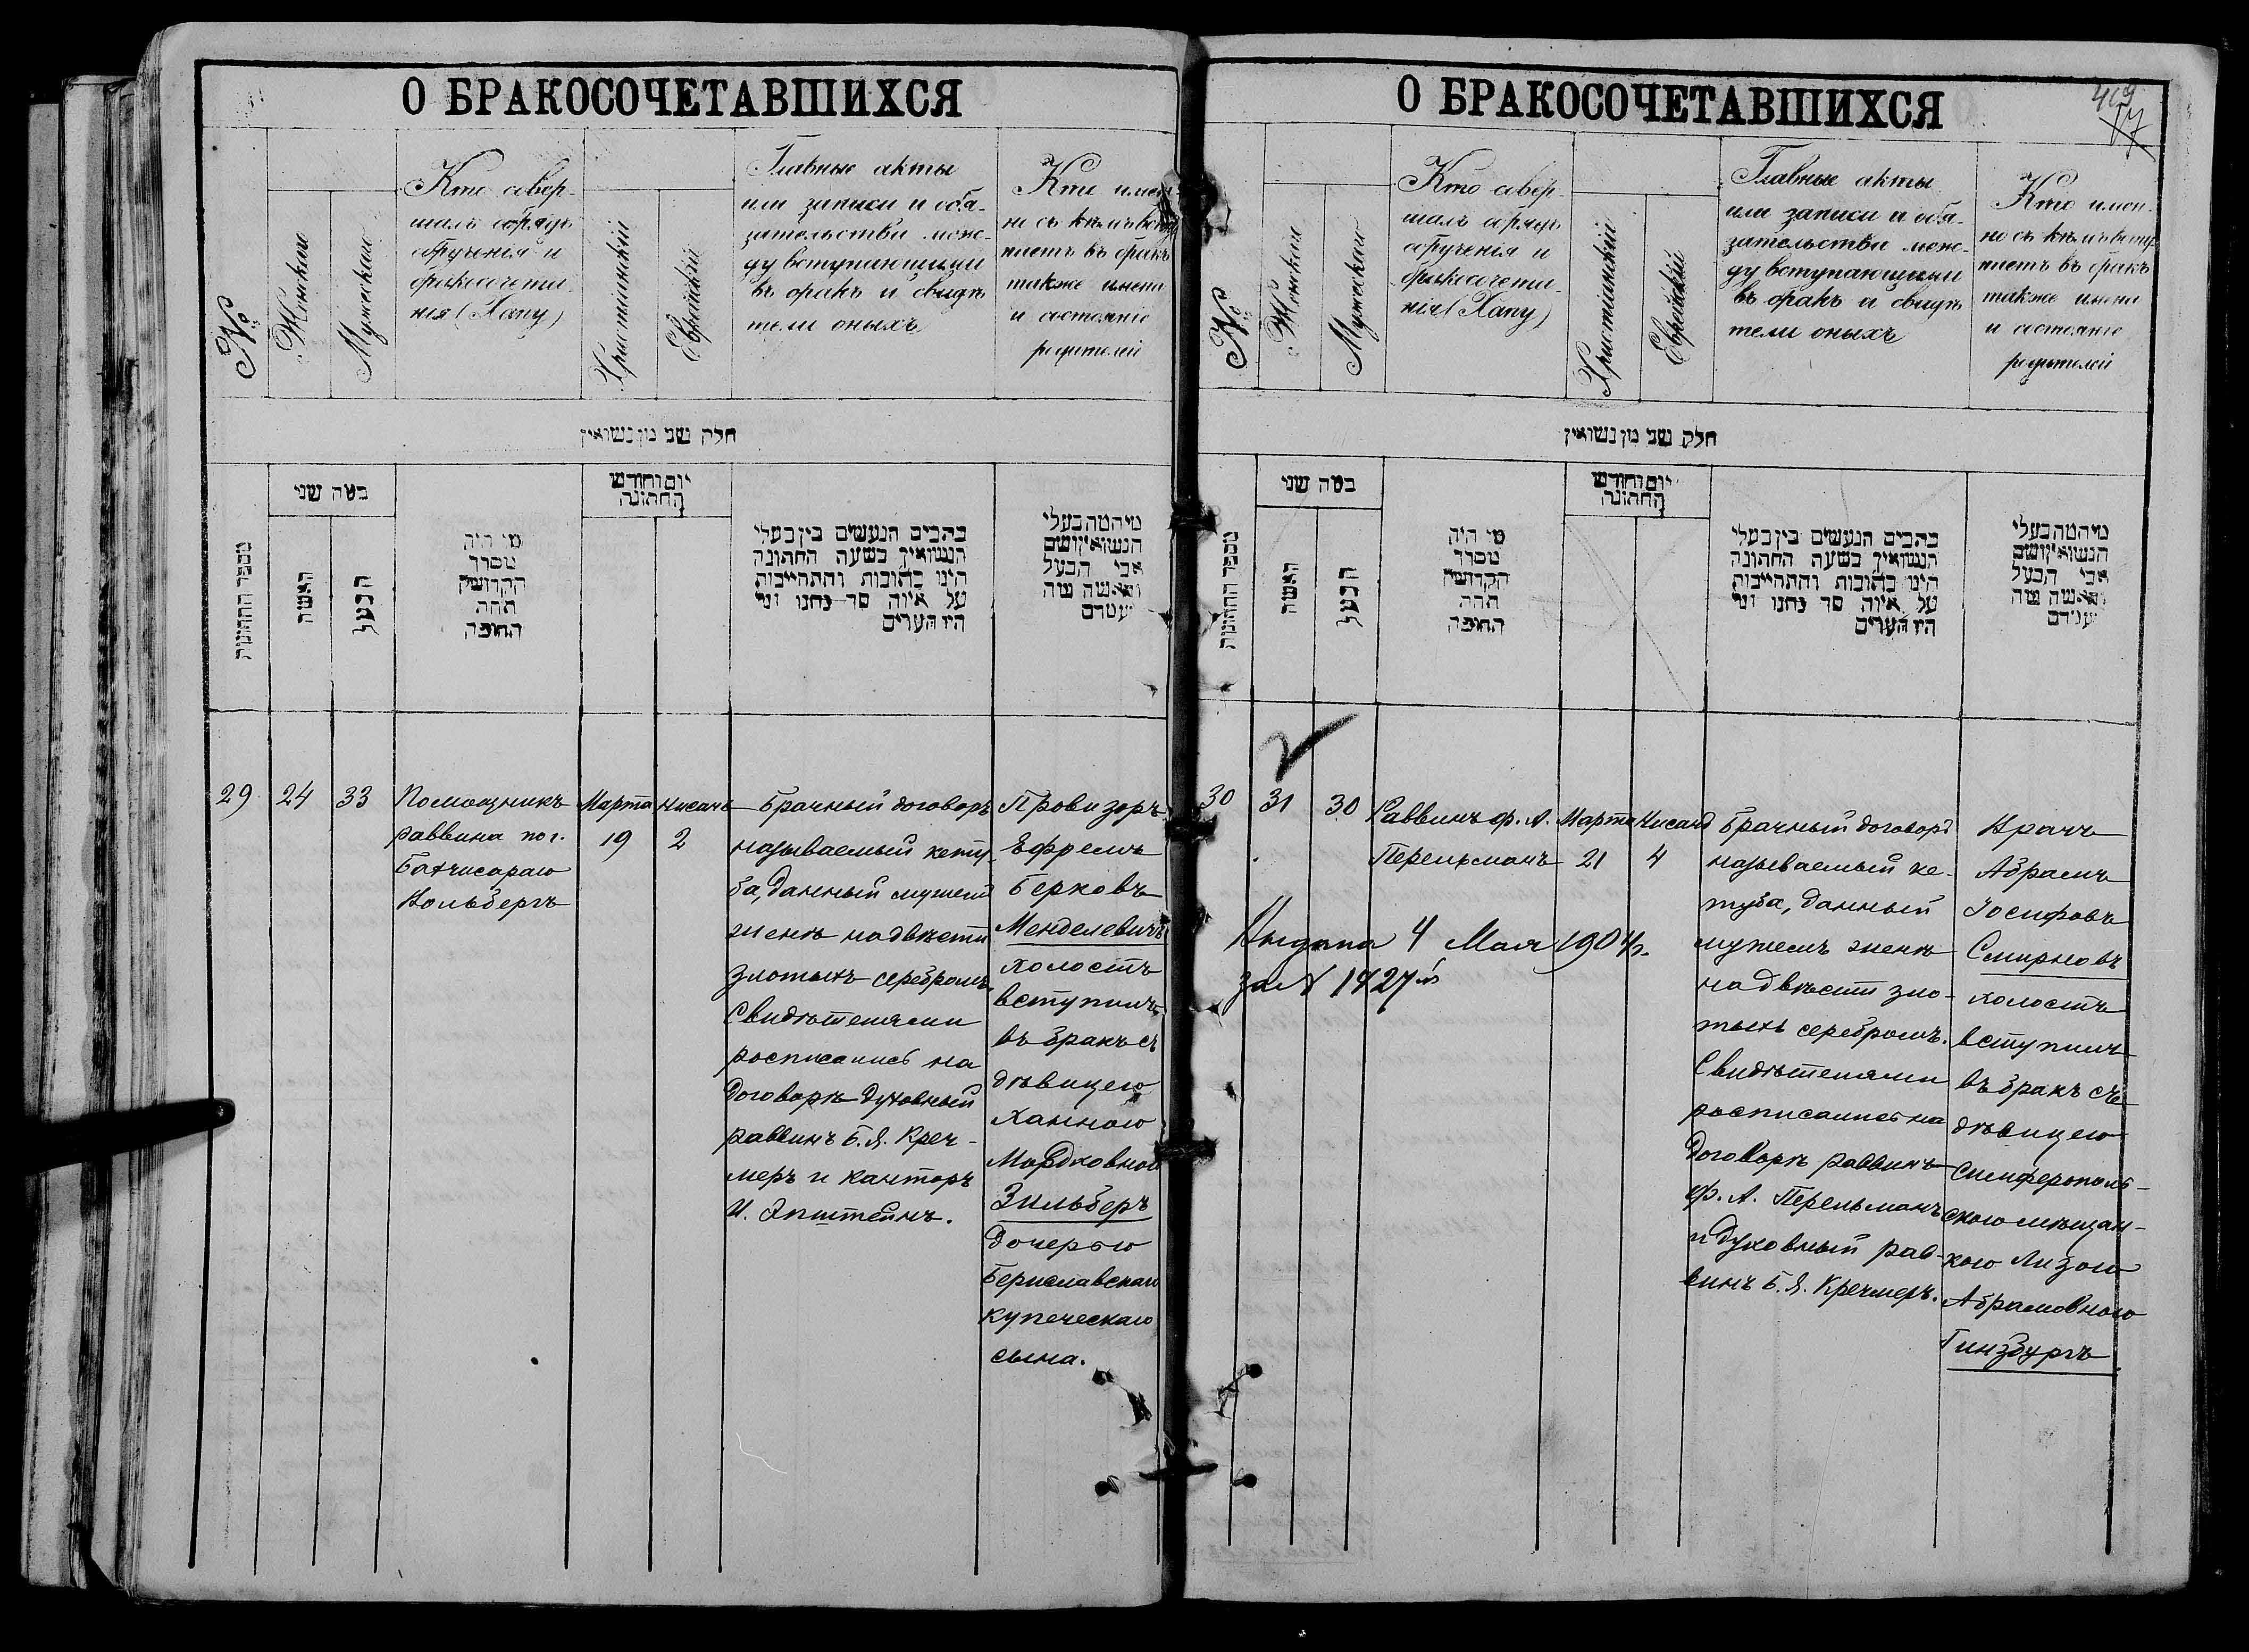 О БРАКОСОЧЕТАВШИХСЯ
№
Женскаго
Мужескаго
Кто совер-
шалъ обрядъ
обрученія и
бракосочета
нія (Хапу)
Христіанскій
Еврейскій
Главные акты
или записи и обя-
зательства меж-
ду вступающими
въ бракъ и свидѣ
тели оныхъ
Кто имен-
но съ кѣмъ всту
паетъ въ бракъ
также имена
и состояніе
родителей
חלק שני מן נשואין
מספר החתונות
כמה שני
האשה
הבעל
מי היה
מסדר
הקדושין
תחת
החופה
יום וחודש
החתונה
כתבים הנעשים בין בעלי
הנשואין בשעה החתונה
היינו כתובות והתחייבות
על איזה סך נתנו ומי
היו העדים
מי המה בעלי
הנשואין ושם
אבי הבעל
והאשה ומה
מעמדם
29
24
33
Помощникъ
раввина по г.
Бахчисараю
Вольбергъ
Марта
19
Нисанъ
2
Брачный договоръ
называемый кету-
ба, данный мужемъ
женѣ на двѣсти
злотыхъ серебромъ.
Свидѣтелями
росписались на
договорѣ духовный
раввинъ Б. Я. Креч-
меръ и канторъ
И. Эпштейнъ.
Провизоръ
Ефремъ
Берковъ
Менделевичъ
холостъ
вступилъ
въ бракъ съ
дѣвицею
Ханною
Мордковною
Зильберъ
дочерью
Бериславскаго
купеческаго
сына.
О БРАКОСОЧЕТАВШИХСЯ
№
Женскаго
Мужескаго
Кто совер-
шалъ обрядъ
обрученія и
бракосочета-
нія (Хапу)
Христіанскій
Еврейскій
Главные акты
или записи и обя-
зательства меж-
ду вступающими
въ бракъ и свидѣ
тели оныхъ
Кто имен-
но съ кѣмъ всту
паетъ въ бракъ
также имена
и состояніе
родителей
חלק שני מן נשואין
מספר החתונות
כמה שני
האשה
הבעל
מי היה
מסדר
הקדושין
תחת
החופה
יום וחודש
החתונה
כתבים הנעשים בין בעלי
הנשואין בשעה החתונה
היינו כתובות והתחייבות
על איזה סך נתנו ומי
היו העדים
מי המה בעלי
הנשואין ושם
אבי הבעל
והאשה ומה
מעמדם
30
31
30
Раввинъ Ф. А.
Перельманъ
Марта
21
Нисанъ
4
Брачный договоръ
называемый ке-
туба, данный
мужемъ женѣ
на двѣсти зло-
тыхъ серебромъ.
Свидѣтелями
росписались на
договорѣ раввинъ
Ф. А. Перельманъ
и духовный рав-
винъ Б. Я. Кречмеръ.
Врачъ
Абрамъ
Іосифовъ
Смирновъ
холостъ
вступилъ
въ бракъ съ
дѣвицею
Симферополь-
скою мѣщан-
кою Лизою
Абрамовною
Гинзбургъ
Выдана 4 Мая 1904 г.
за № 1427